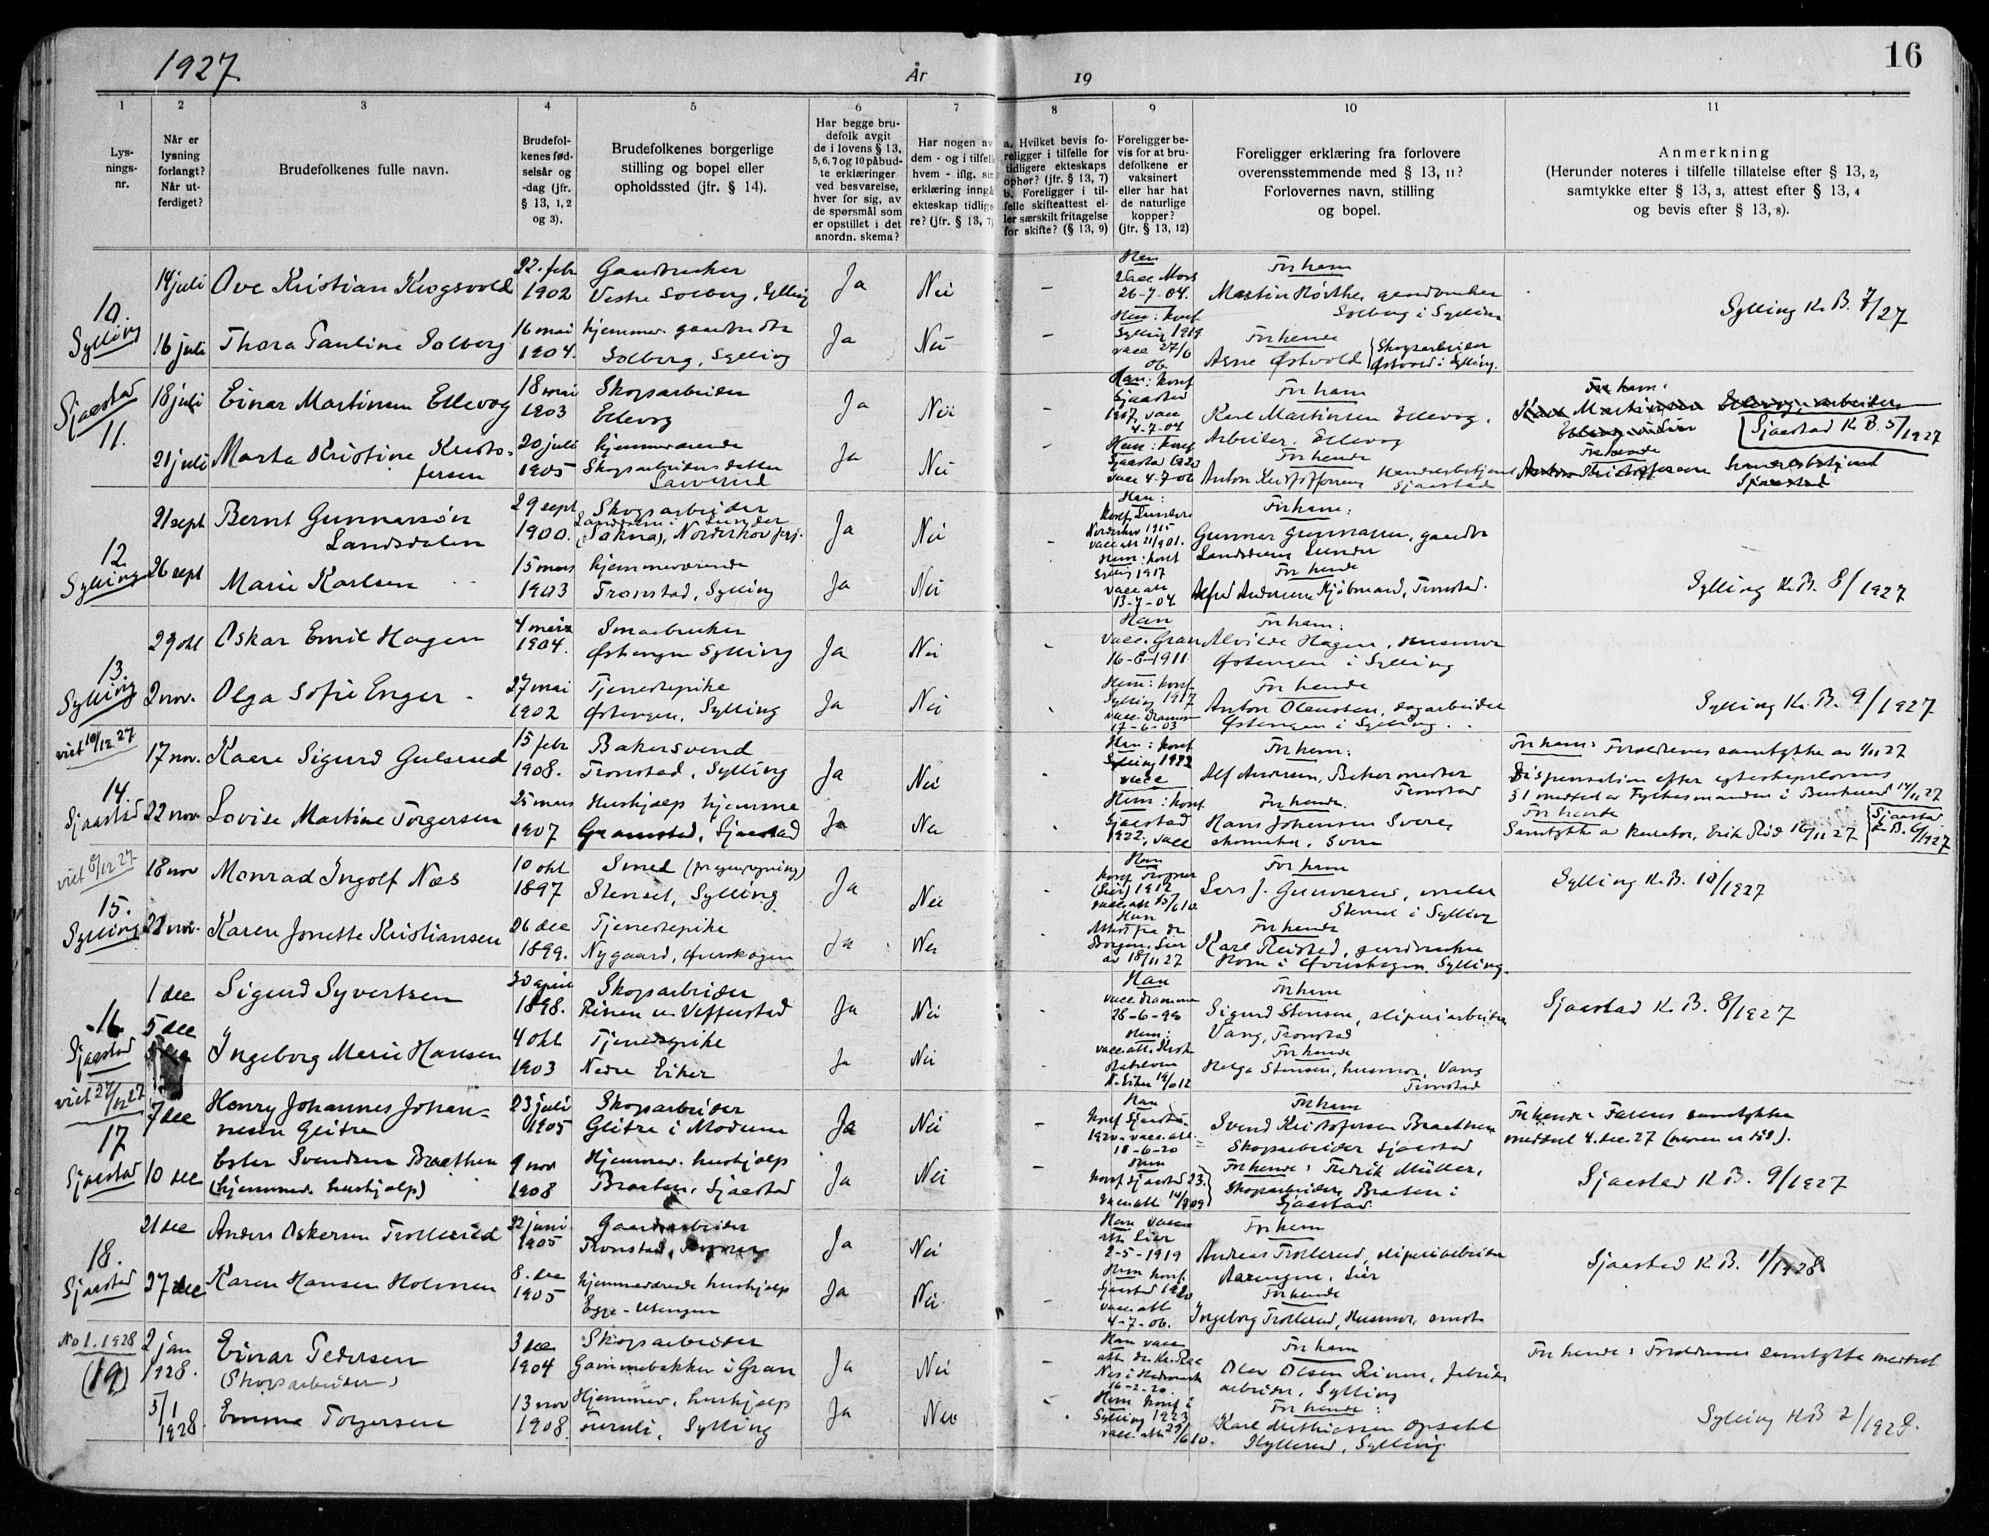 1927
År
19
16
1
2
3
4
5
6
7
8
9
10
11
Lys-
nings-
nr.
Når er
lysning
forlangt?
Når ut-
ferdiget?
Brudefolkenes fulle navn.
Brudefol-
kenes fød-
selsår og
-dag (jfr.
§ 13, 1, 2
og 3).
Brudefolkenes borgerlige
stilling og bopel eller
opholdssted (jfr. § 14).
Har begge bru-
defolk avgit
de i lovens § 13,
5, 6, 7 og 10 påbud-
te erklæringer
ved besvarelse,
hver for sig, av
de spørsmål som
er opstillet i det
anordn. skema?
Har nogen av
dem - og i tilfelle
hvem - iflg. sin
erklæring inngå
ekteskap tidlige-
re? (jfr. § 13, 7)
a. Hvilket bevis fo-
religger i tilfelle for
tidligere ekteskaps
ophør? (jfr. § 13, 7)
b. Foreligger i til-
felle skifteattest el-
ler særskilt fritagelse
for skifte? (§ 13, 9)
Foreligger be-
vis for at bru-
defolkene er
vaksinert
eller har hat
de naturlige
kopper?
(jfr. § 13, 12)
Foreligger erklæring fra forlovere
overensstemmende med § 13, 11?
Forlovernes navn, stilling
og bopel.
Anmerkning
(Herunder noteres i tilfelle tillatelse efter § 13, 2,
samtykke efter § 13, 3, attest efter § 13, 4
og bevis efter § 13, 8).
10.
Sylling
14 juli
Ove Kristian Krogsvold
22. febr
1902
Gaardbruker
Vestre Solberg, Sylling
Ja
Nei
Han
26-7-04.
For ham
Martin gaardbruker
Solberg i Sylling
Sylling K. B. 7/27
16 juli
Thora Pauline Solberg
16 mai
1904.
hjemmev.
Solberg, Sylling
Ja
Nei
Hun: konf
Sylling 1919
vacc 27/6
06.
For hende
Arne Østvold
Skogsarbeider
Østvold i Sylling.
Sjaastad
11.
18 juli
Einar Martinsen Ellevog
18 mai
1903
Skogsarbeider
Ellevog
Ja
Nei
Han: konf
Sjaastad
1917, vacc
4-7-04
For ham
Karl Martinsen Ellevog,
Arbeider. Ellevog
For ham:
Sjaastad K. B. 5/1927
21 juli
Marta Kristine Kristo-
fersen
20 juli
1905
hjemmeværende
Skogsarbeiders datter
Ja
Nei
Hun: konf
Sjaastad 1920
vacc 4-7-06
For hende
Anton Kristoffersen
Sjaastad
For hende
Sjaastad
12.
Sylling
21 sept
Bernt Gunnarsøn
Landsdalen
29 sept
1900.
Skogsarbeider
(Sokna), Norderhov
Ja
Nei
Han:
konf Lunder
Norderhov 1915
For ham:
Gunnar Gunnarsen, gaardbr
Lunder
26 sept
Marie Karlsen
15 mars
1903
hjemmeværende
Tronstad, Sylling
Ja
Nei
Hun: konf
Sylling 1917
vacc att
13-7-04
For hende
Alfred Andersen Kjøbmand, Tronstad.
Sylling K. B. 8/1927
13.
Sylling
29 okt
Oskar Emil Hagen
4 mars
1904.
Smaabruker
Østengen Sylling
Ja
Nei
Han
vacc. Gran
16-8-1911
For ham:
Alvilde Hagen, husmor
Østengen i Sylling
2 nov.
Olga Sofie Enger
27 mai
1902
Tjenestepike
Østengen, Sylling
Ja
Nei
Hun: konf.
Sylling 1917
vacc. Drammen
17-6-03
For hende
Anton Olausten, sagarbeider
Østengen i Sylling.
Sylling K. B. 9/1927
viet 10/12 27
14.
Sjaastad
17 nov.
Kaare Sigurd Gulsrud
15 febr
1908.
Bakersvend
Tronstad, Sylling
Ja
Nei
Han: konf
Sylling 1922
vacc
For ham:
Alf Andersen, Bakermester
Tronstad
For ham: Forældrenes samtykke av 1/11 27
Dispensation efter egteskapslovens
§ 1 meddelt av Fylkesmanden i Buskerud 14/11 27
22 nov
Lovise Martine Torgersen
25 mars
1907
Hushjælp hjemme
Gramstad, Sjaastad
Ja
Nei
Hun: konf
Sjaastad
1922, vacc
For hende.
Hans Johansen Svere,
For hende
Samtykke av kurator, Erik 16/11 27
Sjaastad
K. B. 6/1927
viet 8/12 27
15.
Sylling
18 nov
Monrad Ingolf Næs
10 okt
1897
Smed
Stenset, Sylling
Ja
Nei
Han
konf
(Lier) 1912
For ham
Lars J. Gunnerud, maler
Stenset i Sylling
Sylling K. B. 10/1927
22 nov.
Karen Jonette Kristiansen
26 dec
1899.
Tjenestepike
Nygaard, Øverskogen
Ja
Nei
Hun
Attest fra dr
Borgen, Lier
av 18/11 27
For hende
Karl Reistad, gardbruker
Horn i Øverskogen, Sylling.
16
Sjaastad
1 dec
5 dec
Sigurd Syvertsen
30 april
1898.
Skogsarbeider
Ja
Nei
Han
vacc. Drammen
28-6-99
For ham
Sigurd Stensen, sliperiarbeider
Vang, Tronstad
Sjaastad K. B. 8/1927
Ingeborg Marie Hansen
4 okt
1903
Tjenestepike
Nedre Eiker
Ja
Nei
Hun:
vacc. att.
N. Eiker
For hende
Helga Stensen, husmor, Vang
Tronstad
viet 27/12 27
17
Sjaastad
7 dec
Henry Johannes Johan-
nesen Glitre
23 juli
1905
Skogsarbeider
Glitre i Modum
Ja
Nei
Han
konf Sjaastad
1920. vacc. att.
18-6-20
For ham
Svend Kristofersen Braathen
Skogsarbeider Sjaastad
For hende: Farens samtykke
meddelt 4. dec. 27 (moren er død).
10 dec
Ester Svendsen Braathen
(hjemmev. hushjælp)
9 nov
1908
Hjemmev. hushjælp
Braaten, Sjaastad
Ja
Nei
Hun
konf Sjaastad 23.
vacc att 14/9 09
For hende: Fredrik Müller,
Skogsarbeider, Braaten i
Sjaastad
Sjaastad K. B. 9/1927
18.
Sjaastad
21 dec
Anders Oskarsen Trollerud
22 juni
1905
Gaardsarbeider
Tronstad,
Ja
Nei
Han vacc
att Lier
2-5-1919
For ham
Andreas Trollerud, sliperiarbeider
Lier
Sjaastad K. B. 1/1928
27 dec
Karen Hansen Holmen
8. dec
1905
hjemmeværende hushjælp
Egge-Utengen
Ja
Nei
Hun konf.
Sjaastad 1920
vacc. att
4-7-06.
For hende
Ingeborg Trollerud, Husmor,
No 1. 1928
(19)
2 jan
1928.
Einar Pedersen
(Skogsarbeider)
3 dec
1904
Skogsarbeider
Gammebakken i Gran
Ja
Nei
Han vacc
16-2-20.
For ham
Olav Olsen Rinen, fabrik-
arbeider, Sylling
For hende: Forældrenes samtykke meddelt
3/1
1928
Emma Torgersen
13 nov
1908.
Hjemmev. hushjælp
Furuli, Sylling
Ja
Nei
Hun konf i
Sylling 1923
vacc. att 29/6 10.
For hende:
Karl Mathiassen Opsahl
Hyllerud, Sylling
Sylling K B 2/1928.